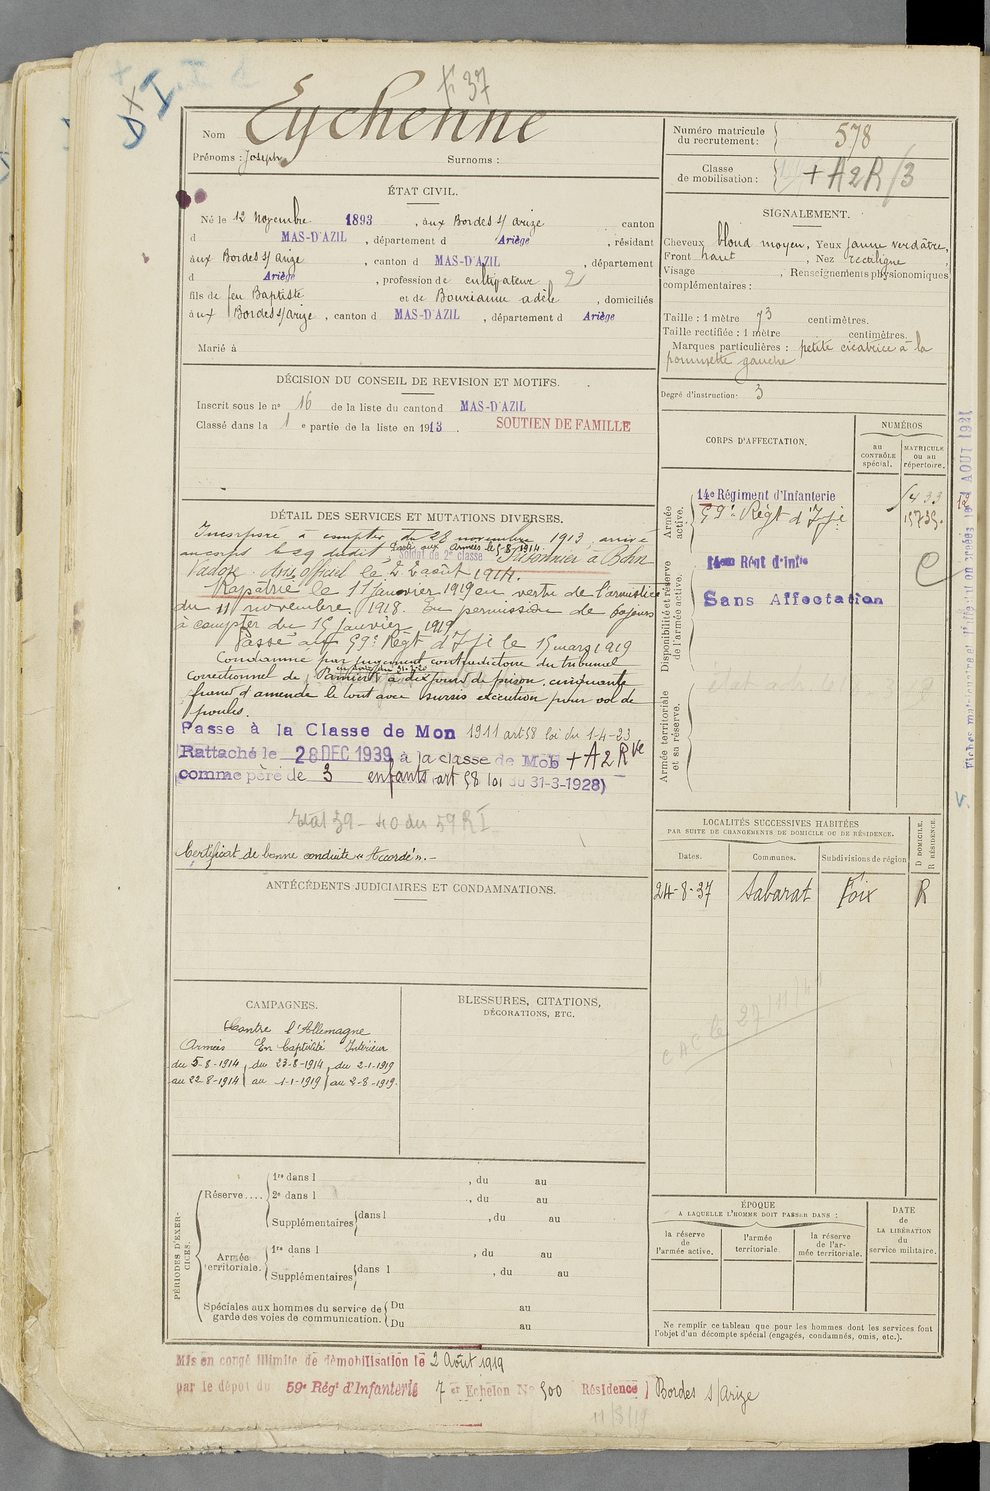 + 37
Nom Eychenne
Prénoms : Joseph Surnoms :
Numéro matricule du recrutement : 578
Classe de mobilisation : + A2R/3
ÉTAT CIVIL.
Né le 12 Novembre 1893, aux Bordes s/ arize canton
d MAS-D'AZIL, département d Ariège, résidant
aux Bordes s/ arize, canton d MAS-D'AZIL, département
d Ariège, profession de cultivateur 2
fils de feu Baptiste et de Bourianne adèle, domiciliés
aux Bordes s/arize, canton d MAS-D'AZIL, département d Ariège
Marié à
SIGNALEMENT.
Cheveux blond moyen, Yeux jaune verdâtre,
Front haut, Nez rectiligne
Visage , Renseignements physionomiques
complémentaires :
Taille : 1 mètre 73 centimètres.
Taille rectifiée : 1 mètre centimètres.
Marques particulières : petite cicatrice à la
pommette gauche
Degré d'instruction : 3
DÉCISION DU CONSEIL DE REVISION ET MOTIFS.
Inscrit sous le n° 16 de la liste du canton d MAS-D'AZIL
Classé dans la 1 e partie de la liste en 1913. SOUTIEN DE FAMILLE
CORPS D'AFFECTATION.
NUMÉROS
au CONTRÔLE spécial.
MATRICULE ou au répertoire.
Armée active.
14e Régiment d'Infanterie
59e Régt d'Ifie
15735.
Disponibilité et réserve de l'armée active.
14eme Régt d'Infie
Sans Affectation
Armée territoriale et sa réserve.
DÉTAIL DES SERVICES ET MUTATIONS DIVERSES.
Incorporé à compter du 28 novembre 1913, arrivé
au corps le 29 dudit Soldat de 2e classe Parti aux Armées le 5-8-1914. Prisonnier à
Avis officiel le 22 août 1914.
Rapatrié le 11 janvier 1919 en vertu de l'armistice
du 11 novembre 1918. En permission de 60 jours
à compter du 15 janvier 1919
Passé au 59e Régt d'Ifie le 15 mars 1919
Condamné par jugement contradictoire du tribunal
correctionnel de Pamiers à dix jours de prison, cinquante
francs d'amende le tout avec sursis exécution pour vol de
poules.
Passé à la Classe de Mon 1911 art 58 loi du 1-4-23
Rattaché le 28 DEC 1939 à la classe de Mob + A2Rve
comme père de 3 enfants art 58 loi du 31-3-1928)
39-40 du 59 RI
Certificat de bonne conduite "Accordé".-
LOCALITÉS SUCCESSIVES HABITÉES
PAR SUITE DE CHANGEMENTS DE DOMICILE OU DE RÉSIDENCE.
Dates. Communes. Subdivisions de région D DOMICILE. R RÉSIDENCE.
24-8-37 Sabarat Foix R
ANTÉCÉDENTS JUDICIAIRES ET CONDAMNATIONS.
CAMPAGNES.
Contre l'Allemagne
Armées En Captivité Intérieur
du 5-8-1914 du 23-8-1914 du 2-1-1919
au 22-8-1914 au 1-1-1919 au 2-8-1919
BLESSURES, CITATIONS,
DÉCORATIONS, ETC.
PÉRIODES D'EXERCICES.
Réserve....
1re dans l , du au
2e dans l , du au
Supplémentaires dans l , du au
Armée territoriale.
1re dans l , du au
Supplémentaires dans l , du au
Spéciales aux hommes du service de
garde des voies de communication.
Du au
Du au
ÉPOQUE
A LAQUELLE L'HOMME DOIT PASSER DANS :
la réserve de l'armée active.
l'armée territoriale.
la réserve de l'armée territoriale.
DATE de LA LIBÉRATION du service militaire.
Ne remplir ce tableau que pour les hommes dont les services font
l'objet d'un décompte spécial (engagés, condamnés, omis, etc.).
Mis en congé illimité de démobilisation le 2 Août 1919
par le dépôt du 59e Régt d'Infanterie 7 er Echelon N° 500 Résidence Bordes s/Arize
11/8/19